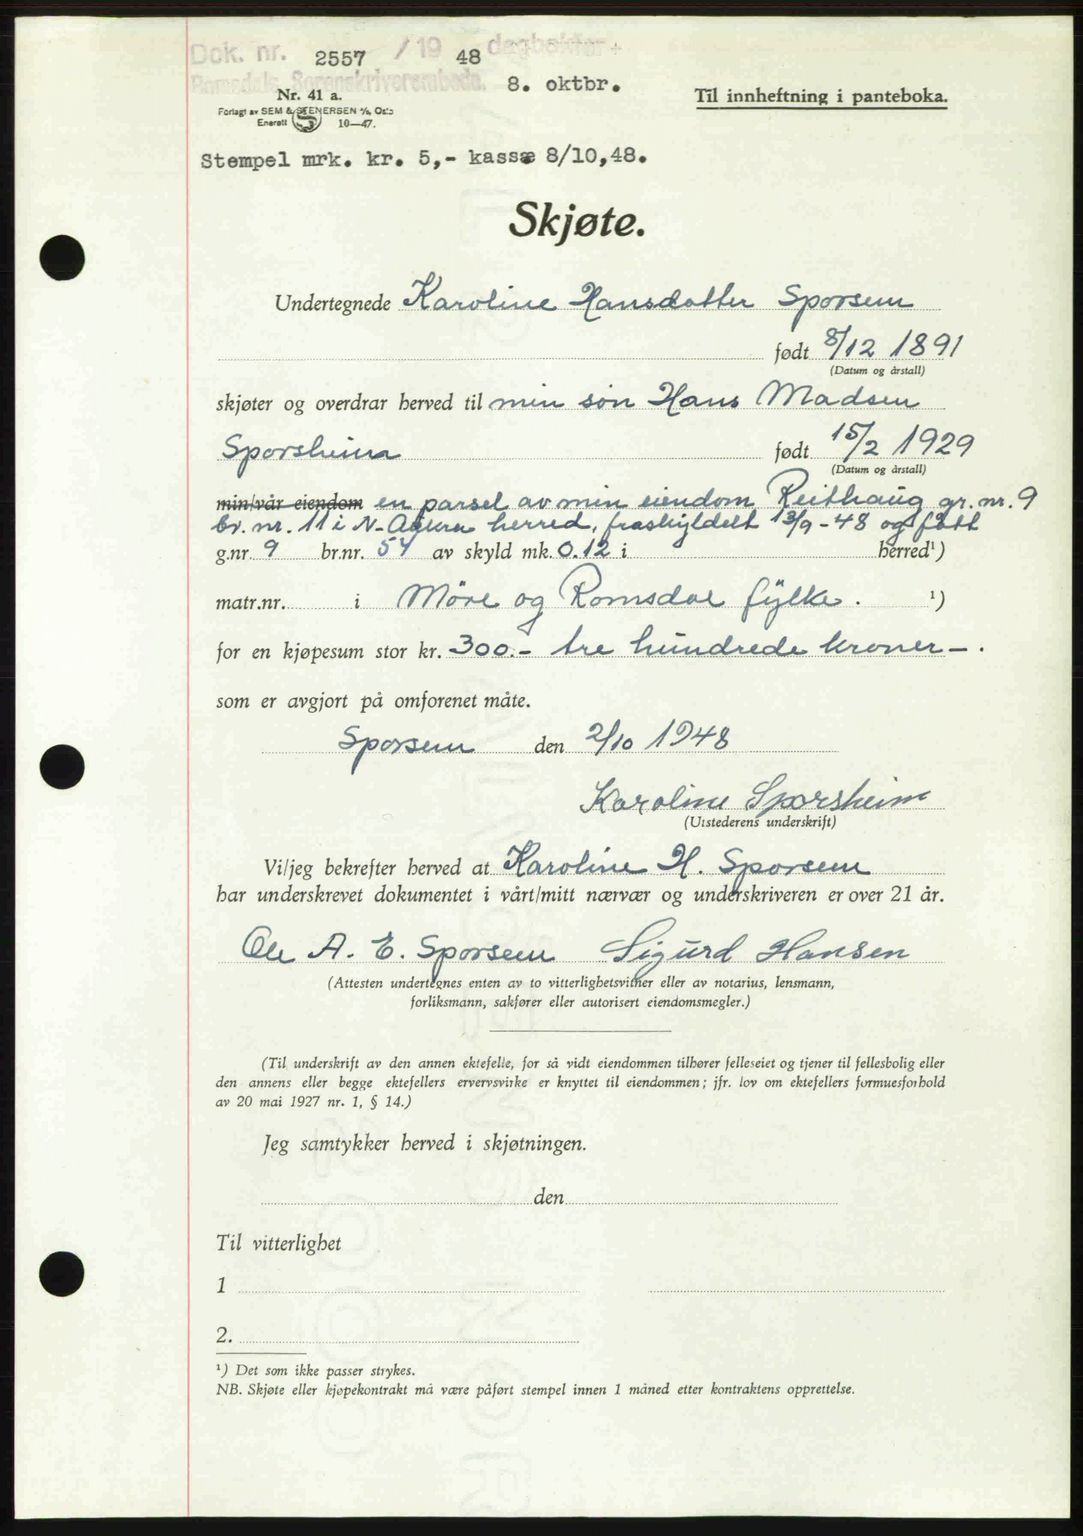 Dok. nr. 2557 / 19 48 dagbokført
Romsdals Sorenskriverembede. 8. oktbr.
Nr. 41 a. Til innheftning i panteboka.
Forlagt av SEM & STENERSEN A/S, Oslo
Enerett S 10—47.
Stempel mrk. kr. 5,- kassæ 8/10,48.
Skjøte.
Undertegnede Karoline Hansdatter Sporsem
født 8/12 1891
(Datum og årstall)
skjøter og overdrar herved til min søn Hans Madsen
Sporsheim født 15/2 1929
(Datum og årstall)
min/vår eiendom en parsel av min eiendom Reithaug gr. nr. 9
br. nr. 11 i N-Aukra herred, fraskyldelt 13/9-48 og fått
g.nr. 9 br.nr. 54 av skyld mk. 0.12 i herred¹)
matr.nr. i Möre og Romsdal fylke. ¹)
for en kjøpesum stor kr. 300.- tre hundrede kroner - .
som er avgjort på omforenet måte.
Sporsem den 2/10 1948
Karoline Sporsheim
(Utstederens underskrift)
Vi/jeg bekrefter herved at Karoline H. Sporsem
har underskrevet dokumentet i vårt/mitt nærvær og underskriveren er over 21 år.
Ole A. E. Sporsem Sigurd Hansen
(Attesten undertegnes enten av to vitterlighetsvitner eller av notarius, lensmann,
forliksmann, sakfører eller autorisert eiendomsmegler.)
(Til underskrift av den annen ektefelle, for så vidt eiendommen tilhører felleseiet og tjener til fellesbolig eller
den annens eller begge ektefellers ervervsvirke er knyttet til eiendommen; jfr. lov om ektefellers formuesforhold
av 20 mai 1927 nr. 1, § 14.)
Jeg samtykker herved i skjøtningen.
den
Til vitterlighet
1
2.
¹) Det som ikke passer strykes.
NB. Skjøte eller kjøpekontrakt må være påført stempel innen 1 måned etter kontraktens opprettelse.